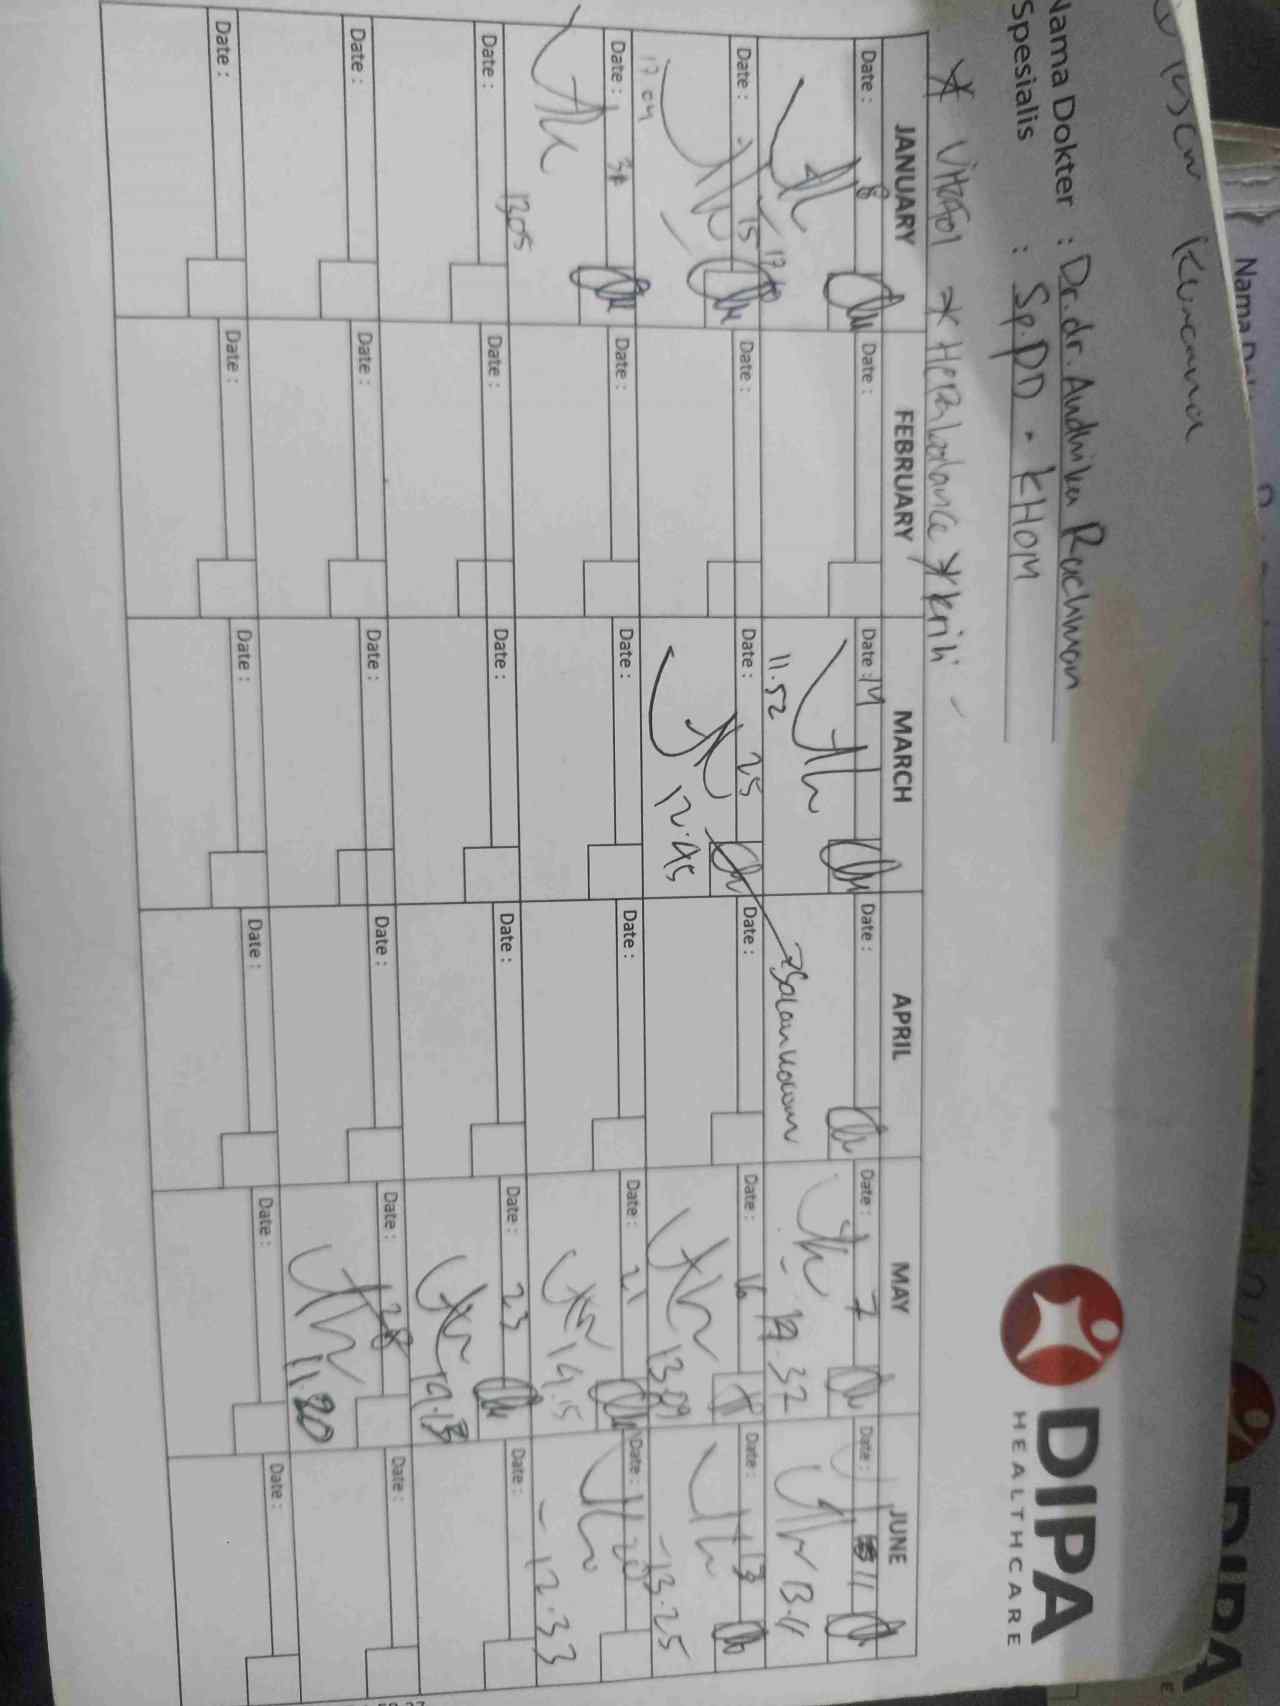 Kencana
DIPA
HEALTHCARE
Nama Dokter : Dr. dr. Andhika Rachman
Spesialis : Sp.PD - KHOM
JANUARY FEBRUARY MARCH APRIL MAY JUNE
Date : 8 Date : Date : 14 Date : Date : 7 Date : 11
11.52 19.37 13.11
Date : 15 Date : Date : 25 Date : Date : 16 Date : 13
17.04 12.45 13.09 13.25
Date : 31 Date : Date : Date : Date : 21 Date : 20
13.05 14.15 12.33
Date : Date : Date : Date : Date : 23 Date :
Date : Date : Date : Date : Date : 28 Date :
11.20
Date : Date : Date : Date : Date : Date :